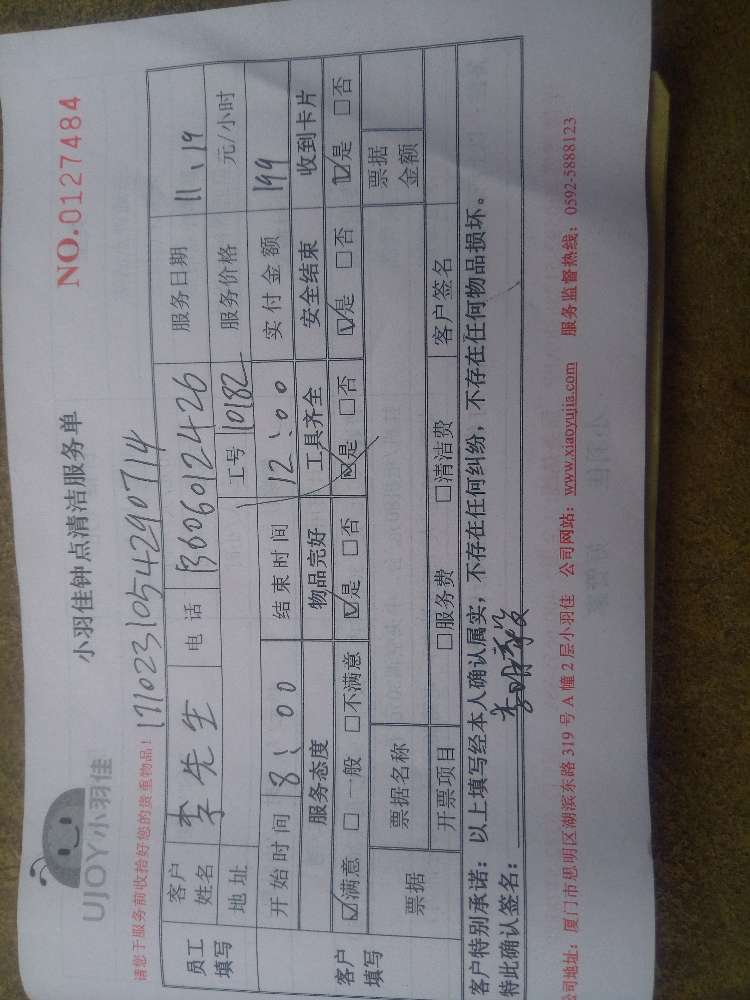 UJOY小羽佳
小羽佳钟点清洁服务单
NO.0127484
请您于服务前收拾好您的贵重物品!
1710231054290714
员工填写 客户姓名 李先生 电话 13606012426 服务日期 11、19
地址 工号 10182 服务价格 元/小时
客户填写 开始时间 8:00 结束时间 12:00 实付金额 199
服务态度 物品完好 工具齐全 安全结束 收到卡片
☑满意 □一般 □不满意 ☑是 □否 ☑是 □否 ☑是 □否 ☑是 □否
票据 票据名称 票据金额
开票项目 □服务费 □清洁费 客户签名
客户特别承诺:以上填写经本人确认属实,不存在任何纠纷,不存在任何物品损坏。
特此确认签名:
公司地址:厦门市思明区湖滨东路319号A幢2层小羽佳 公司网站:www.xiaoyujia.com 服务监督热线:0592-5888123